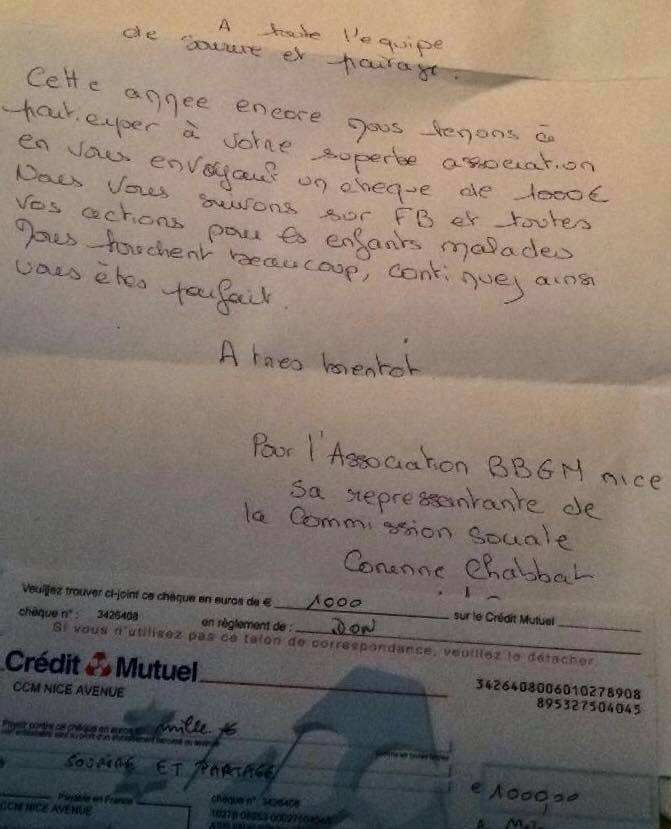 A toute l'equipe
de sourire et partage.
Cette année encore nous tenons à
participer à votre superbe association
en vous envoyant un cheque de 1000€
Nous vous suivons sur FB et toutes
vos actions pour les enfants malades
nous touchent beaucoup, continuez ainsi
vous êtes parfait.
A tres bientot
Pour l'Association BBGM nice
sa representante de
la Commission sociale
Corinne Chabbat
Veuillez trouver ci-joint ce chèque en euros de € 1000 sur le Crédit Mutuel
chèque n° : 3426408 en règlement de : DON
Si vous n'utilisez pas ce talon de correspondance, veuillez le détacher
Crédit Mutuel
CCM NICE AVENUE
3426408006010278908
895327504045
Payez contre ce chèque en euros
mille €
SOURIRE ET PARTAGE
€ 1000,00
Payable en France
CCM NICE AVENUE
chèque n° 3426408